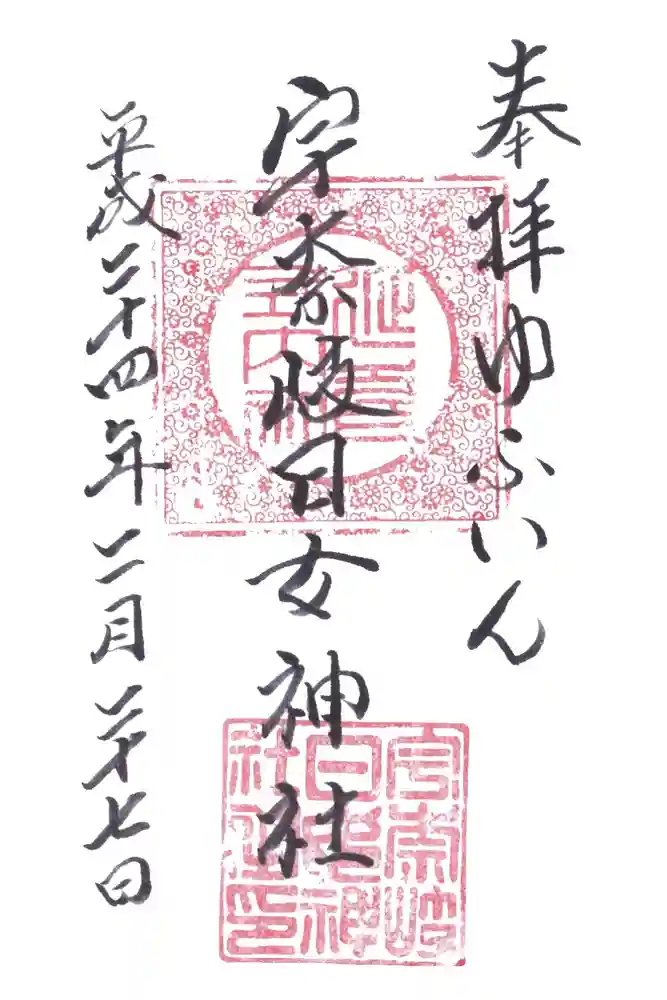 奉拝ゆふいん
宇奈岐日女神社
平成二十四年二月二十七日
延喜
式内社
宇奈岐
日女神